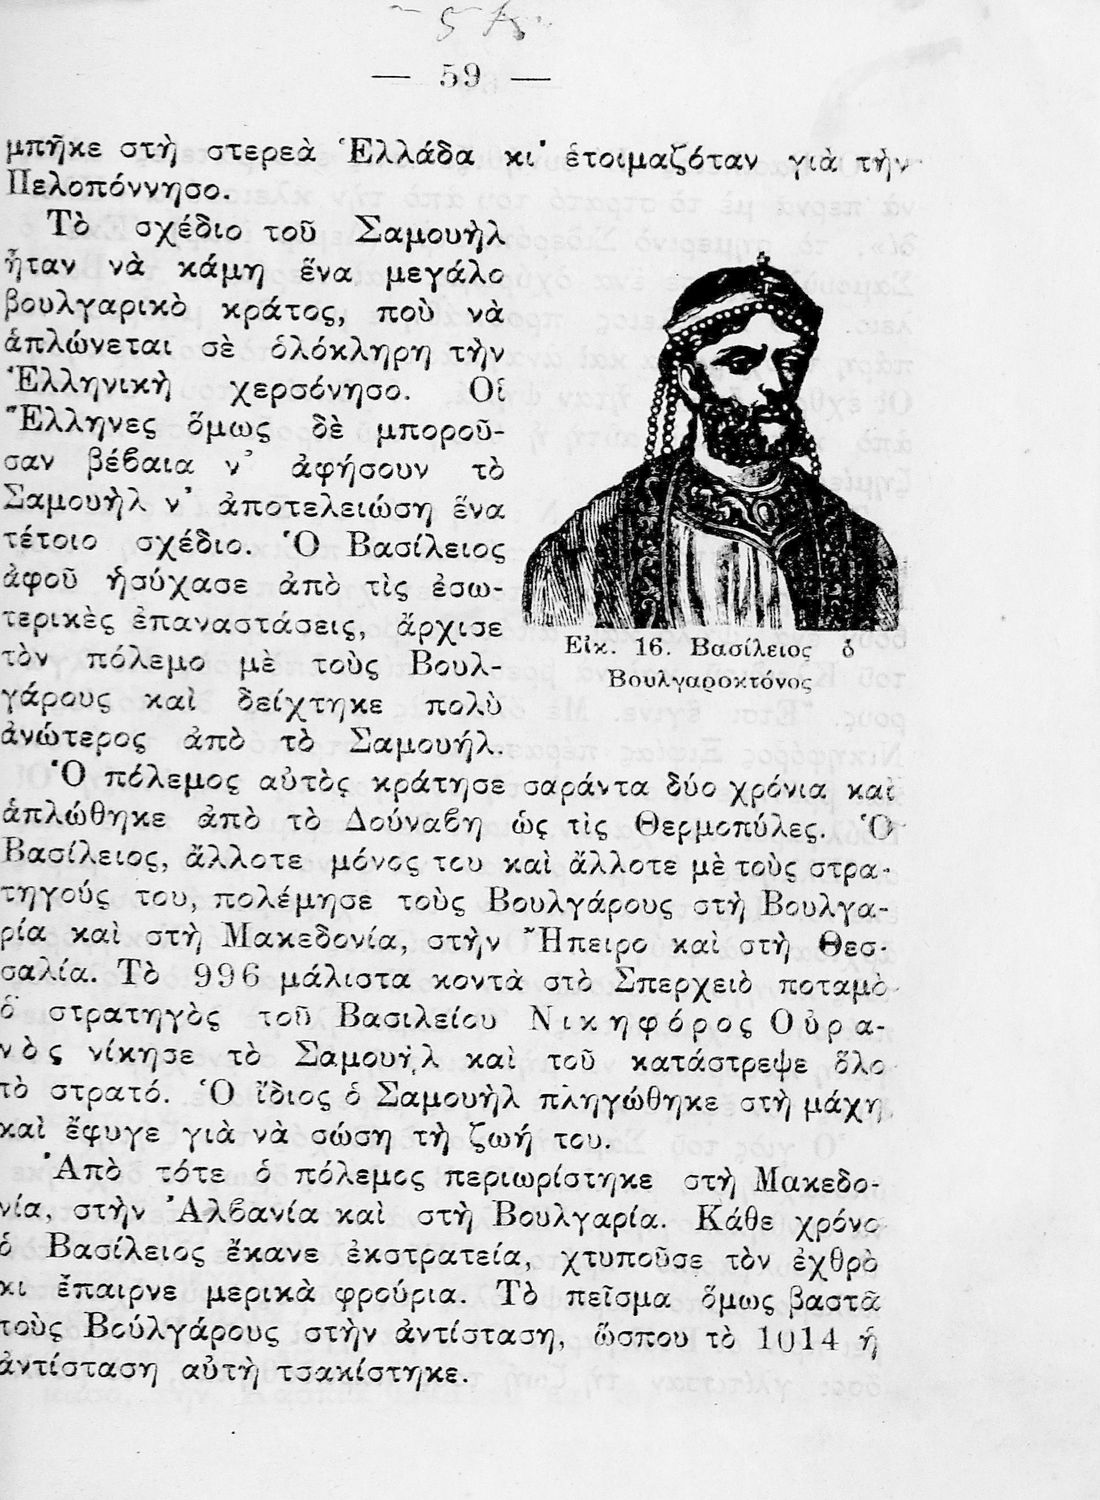 — 59 —
μπῆκε στὴ στερεὰ Ἑλλάδα κι' ἑτοιμαζόταν γιὰ τὴν
Πελοπόννησο.
Τὸ σχέδιο τοῦ Σαμουὴλ
ἦταν νὰ κάμη ἕνα μεγάλο
βουλγαρικὸ κράτος, ποὺ νὰ
ἁπλώνεται σὲ ὁλόκληρη τὴν
Ἑλληνικὴ χερσόνησο. Οἱ
Ἕλληνες ὅμως δὲ μποροῦ-
σαν βέβαια ν' ἀφήσουν τὸ
Σαμουὴλ ν' ἀποτελειώση ἕνα
τέτοιο σχέδιο. Ὁ Βασίλειος
ἀφοῦ ἡσύχασε ἀπὸ τὶς ἐσω-
τερικὲς ἐπαναστάσεις, ἄρχισε
τὸν πόλεμο μὲ τοὺς Βουλ-
γάρους καὶ δείχτηκε πολὺ
ἀνώτερος ἀπὸ τὸ Σαμουήλ.
Εἰκ. 16. Βασίλειος ὁ
Βουλγαροκτόνος
Ὁ πόλεμος αὐτὸς κράτησε σαράντα δύο χρόνια καὶ
ἁπλώθηκε ἀπὸ τὸ Δούναβη ὡς τὶς Θερμοπύλες. Ὁ
Βασίλειος, ἄλλοτε μόνος του καὶ ἄλλοτε μὲ τοὺς στρα-
τηγούς του, πολέμησε τοὺς Βουλγάρους στὴ Βουλγα-
ρία καὶ στὴ Μακεδονία, στὴν Ἤπειρο καὶ στὴ Θεσ-
σαλία. Τὸ 996 μάλιστα κοντὰ στὸ Σπερχειὸ ποταμὸ
ὁ στρατηγὸς τοῦ Βασιλείου Νικηφόρος Οὐρα-
νὸς νίκησε τὸ Σαμουὴλ καὶ τοῦ κατάστρεψε ὅλο
τὸ στρατό. Ὁ ἴδιος ὁ Σαμουὴλ πληγώθηκε στὴ μάχη
καὶ ἔφυγε γιὰ νὰ σώση τὴ ζωή του.
Ἀπὸ τότε ὁ πόλεμος περιωρίστηκε στὴ Μακεδο-
νία, στὴν Ἀλβανία καὶ στὴ Βουλγαρία. Κάθε χρόνο
ὁ Βασίλειος ἔκανε ἐκστρατεία, χτυποῦσε τὸν ἐχθρὸ
κι ἔπαιρνε μερικὰ φρούρια. Τὸ πεῖσμα ὅμως βαστᾶ
τοὺς Βούλγάρους στὴν ἀντίσταση, ὥσπου τὸ 1014 ἡ
ἀντίσταση αὐτὴ τσακίστηκε.